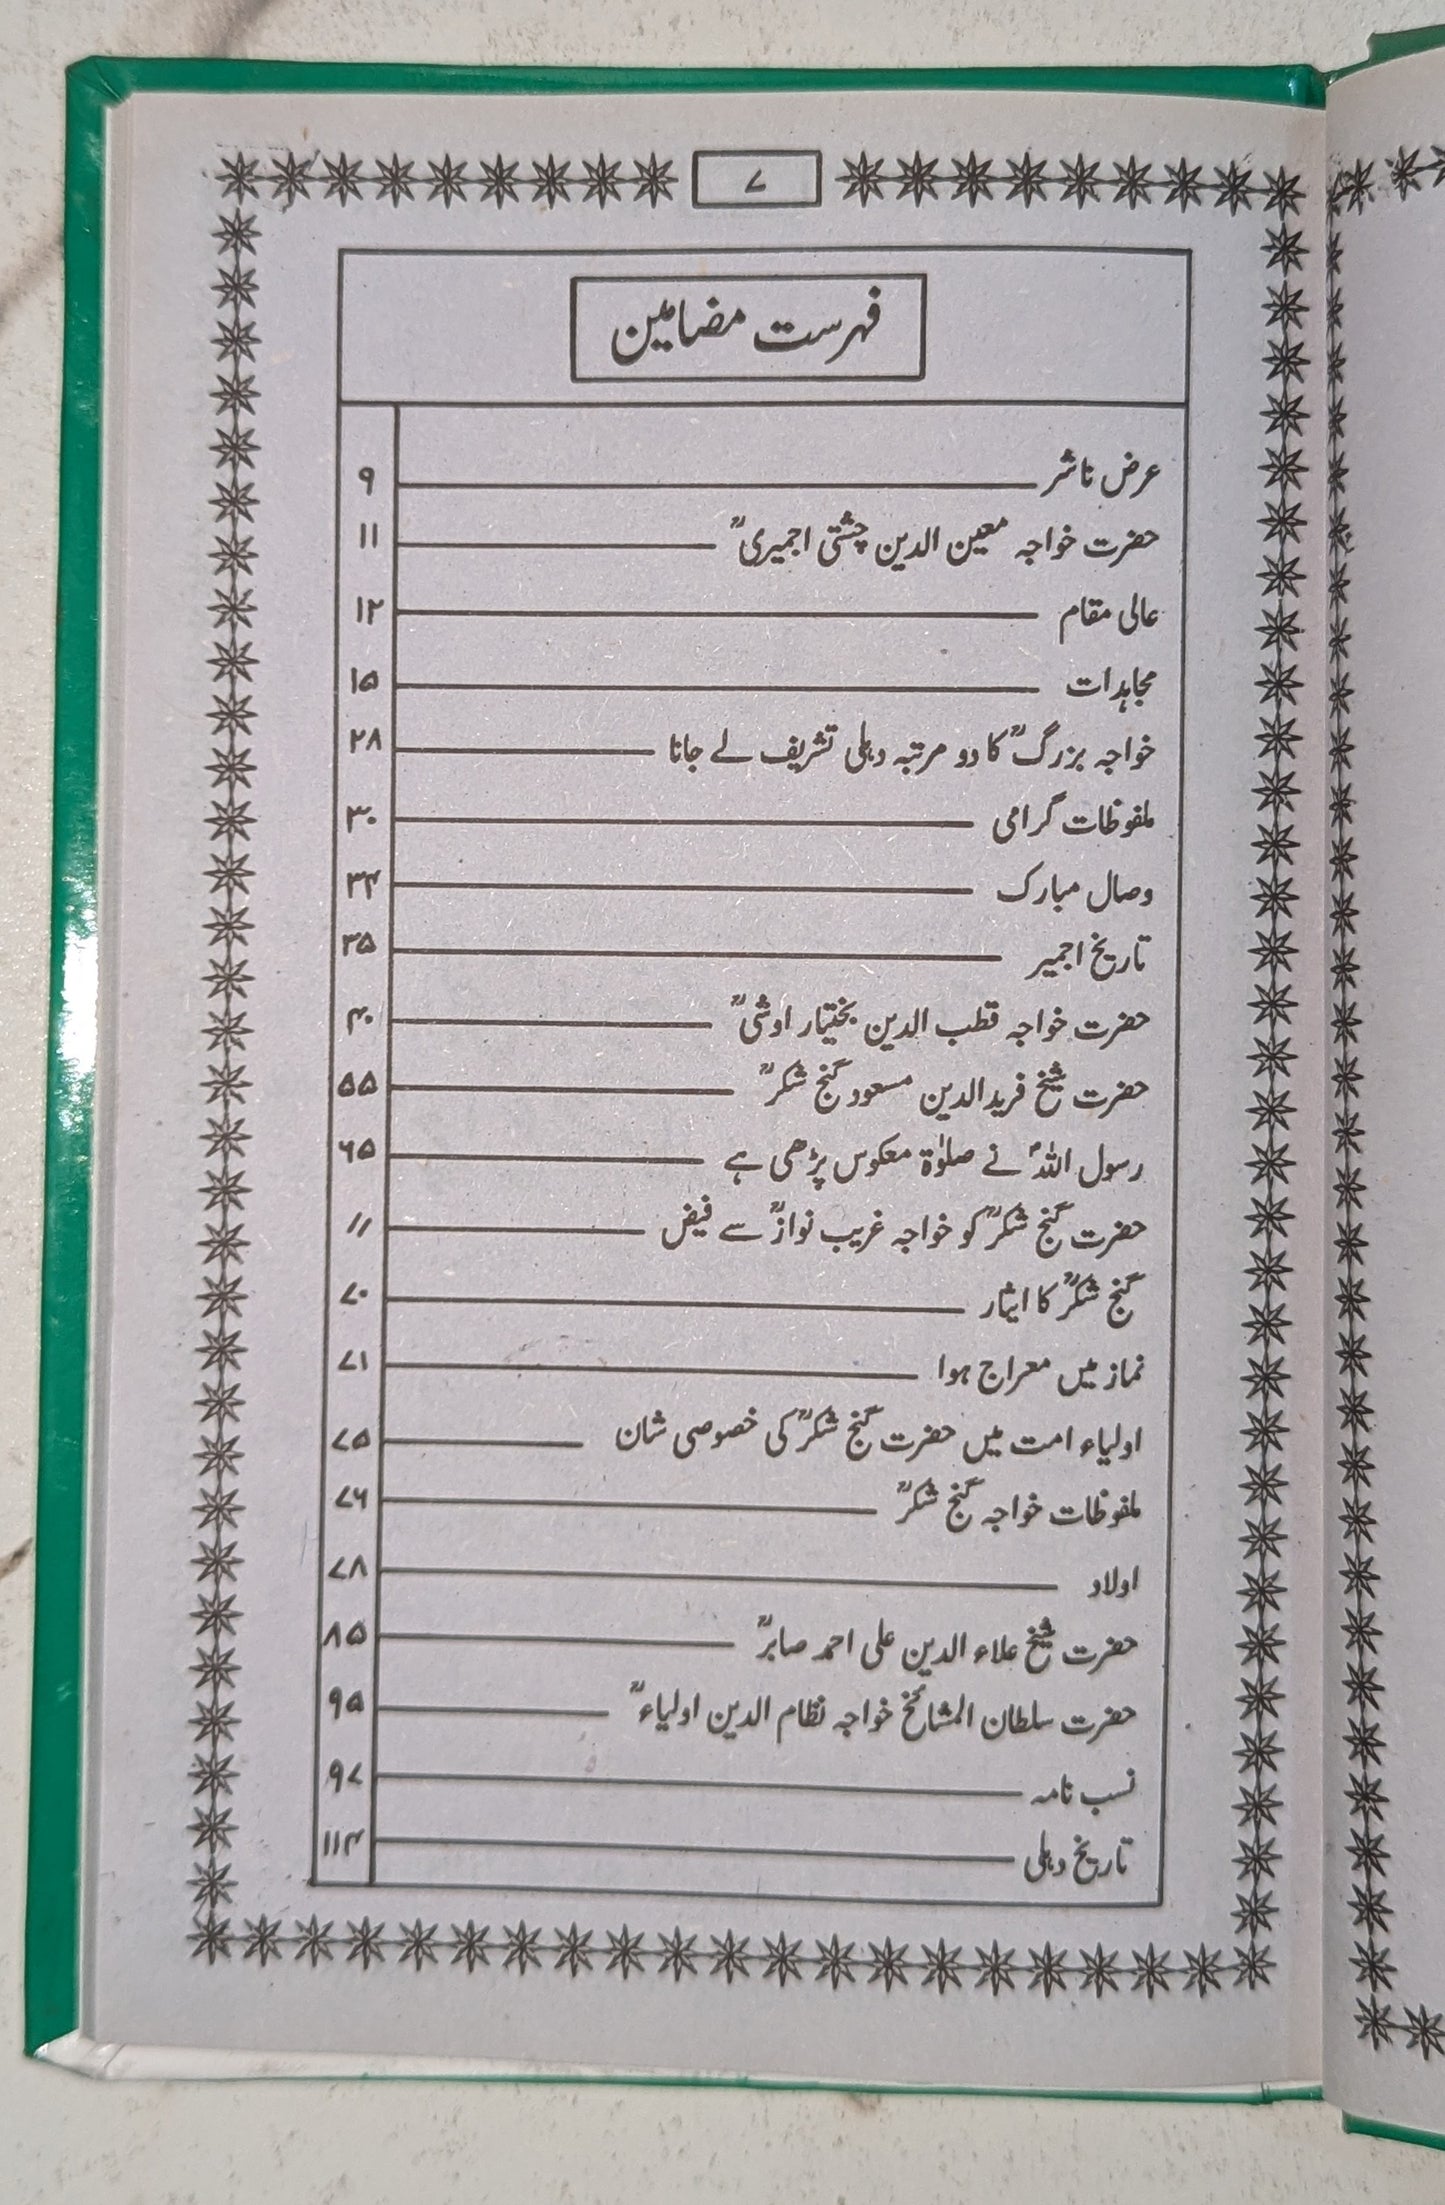 ۷
فہرست مضامین
عرض ناشر ۹
حضرت خواجہ معین الدین چشتی اجمیریؒ ۱۱
عالی مقام ۱۲
مجاہدات ۱۵
خواجہ بزرگؒ کا دو مرتبہ دہلی تشریف لے جانا ۲۸
ملفوظات گرامی ۳۰
وصال مبارک ۳۴
تاریخ اجمیر ۳۵
حضرت خواجہ قطب الدین بختیار اوشیؒ ۴۰
حضرت شیخ فریدالدین مسعود گنج شکرؒ ۵۵
رسول اللہؐ نے صلوٰۃ معکوس پڑھی ہے ۶۵
حضرت گنج شکرؒ کو خواجہ غریب نوازؒ سے فیض ۱۱
گنج شکرؒ کا ایثار ۷۰
نماز میں معراج ہوا ۷۱
اولیاء امت میں حضرت گنج شکرؒ کی خصوصی شان ۷۵
ملفوظات خواجہ گنج شکرؒ ۷۶
اولاد ۷۸
حضرت شیخ علاء الدین علی احمد صابرؒ ۸۵
حضرت سلطان المشائخ خواجہ نظام الدین اولیاءؒ ۹۵
نسب نامہ ۹۷
تاریخ دہلی ۱۱۴